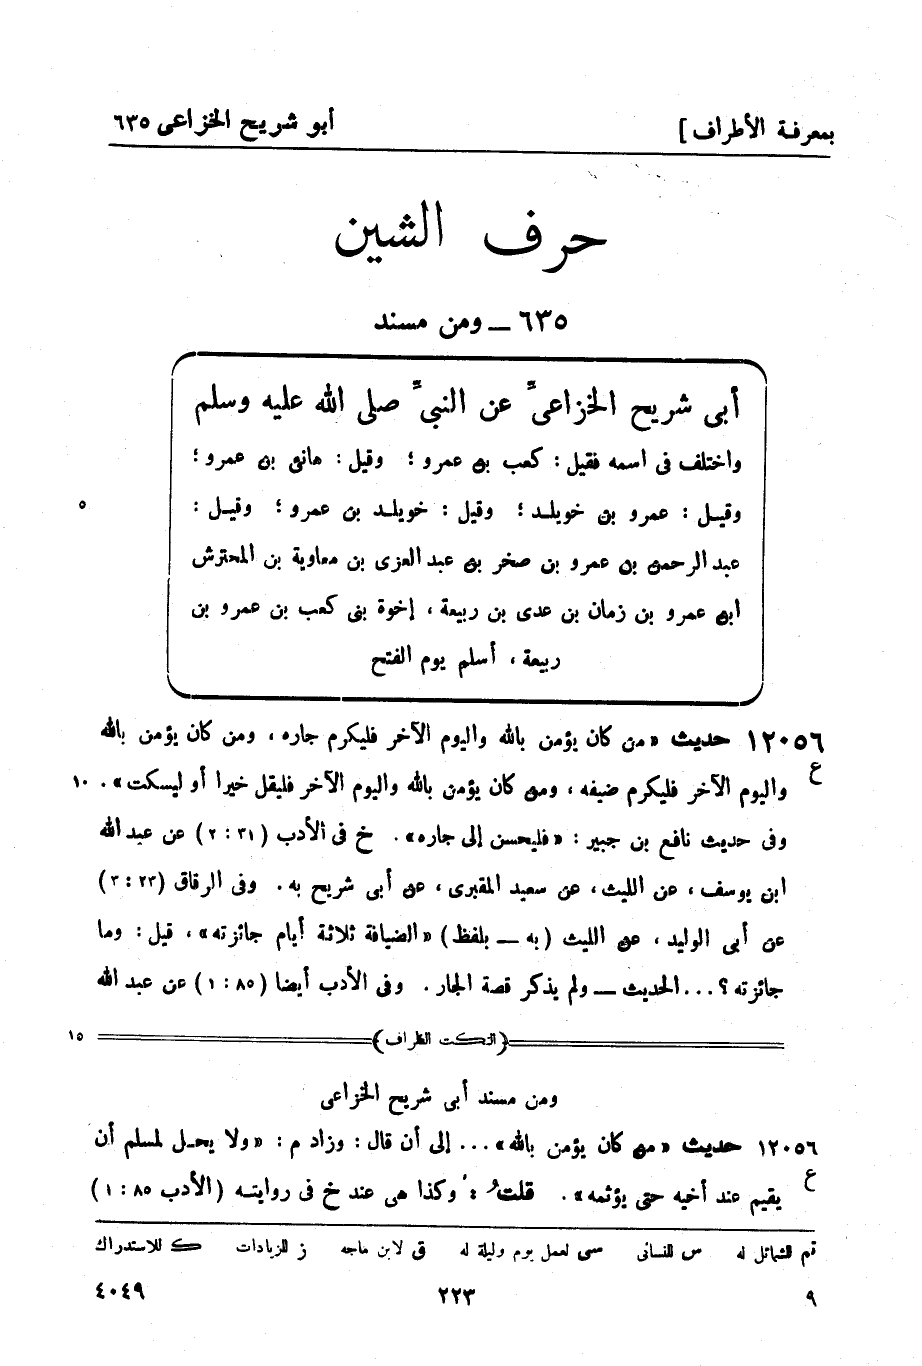 بمعرفة الأطراف] أبو شريح الخزاعى ٦٣٥
حرف الشين
٦٣٥ ــ ومن مسند
أبى شريح الخزاعىّ عن النبىّ صلى الله عليه وسلم
واختلف فى اسمه فقيل : كعب بن عمرو ؛ وقيل : هانئ بن عمرو ؛
وقيـل : عمرو بن خويلـد ؛ وقيل : خويلـد بن عمرو ؛ وقيـل : ٥
عبد الرحمن بن عمرو بن صخر بن عبد العزى بن معاوية بن المحترش
ابن عمرو بن زمان بن عدى بن ربيعة ، إخوة بنى كعب بن عمرو بن
ربيعة ، أسلم يوم الفتح
١٢٠٥٦ حديث « من كان يؤمن بالله واليوم الآخر فليكرم جاره ، ومن كان يؤمن بالله
ع واليوم الآخر فليكرم ضيفه ، ومن كان يؤمن بالله واليوم الآخر فليقل خيرا أو ليسكت» . ١٠
وفى حديث نافع بن جبير : « فليحسن إلى جاره» . خ فى الأدب (٣١ : ٢) عن عبد الله
ابن يوسف ، عن الليث ، عن سعيد المقبرى ، عن أبى شريح به . وفى الرقاق (٢٣ : ٣)
عن أبى الوليد ، عن الليث (به ــ بلفظ) «الضيافة ثلاثة أيام جائزته» ، قيل : وما
جائزته ؟ . . . الحديث ــ ولم يذكر قصة الجار . وفى الأدب أيضا (٨٥ : ١) عن عبد الله
(النكت الظراف) ١٥
ومن مسند أبى شريح الخزاعى
١٢٠٥٦ حديث « من كان يؤمن بالله» . . . إلى أن قال : وزاد م : « ولا يحـل لمسلم أن
ع يقيم عند أخيه حتى يؤثمه» . قلتُ : وكذا هى عند خ فى روايتـه (الأدب ٨٥ : ١)
تم للشمائل له س للنسائى سى لعمل يوم وليلة له ق لابن ماجه ز للزيادات ك للاستدراك
٩ ٢٢٣ ٤٠٤٩